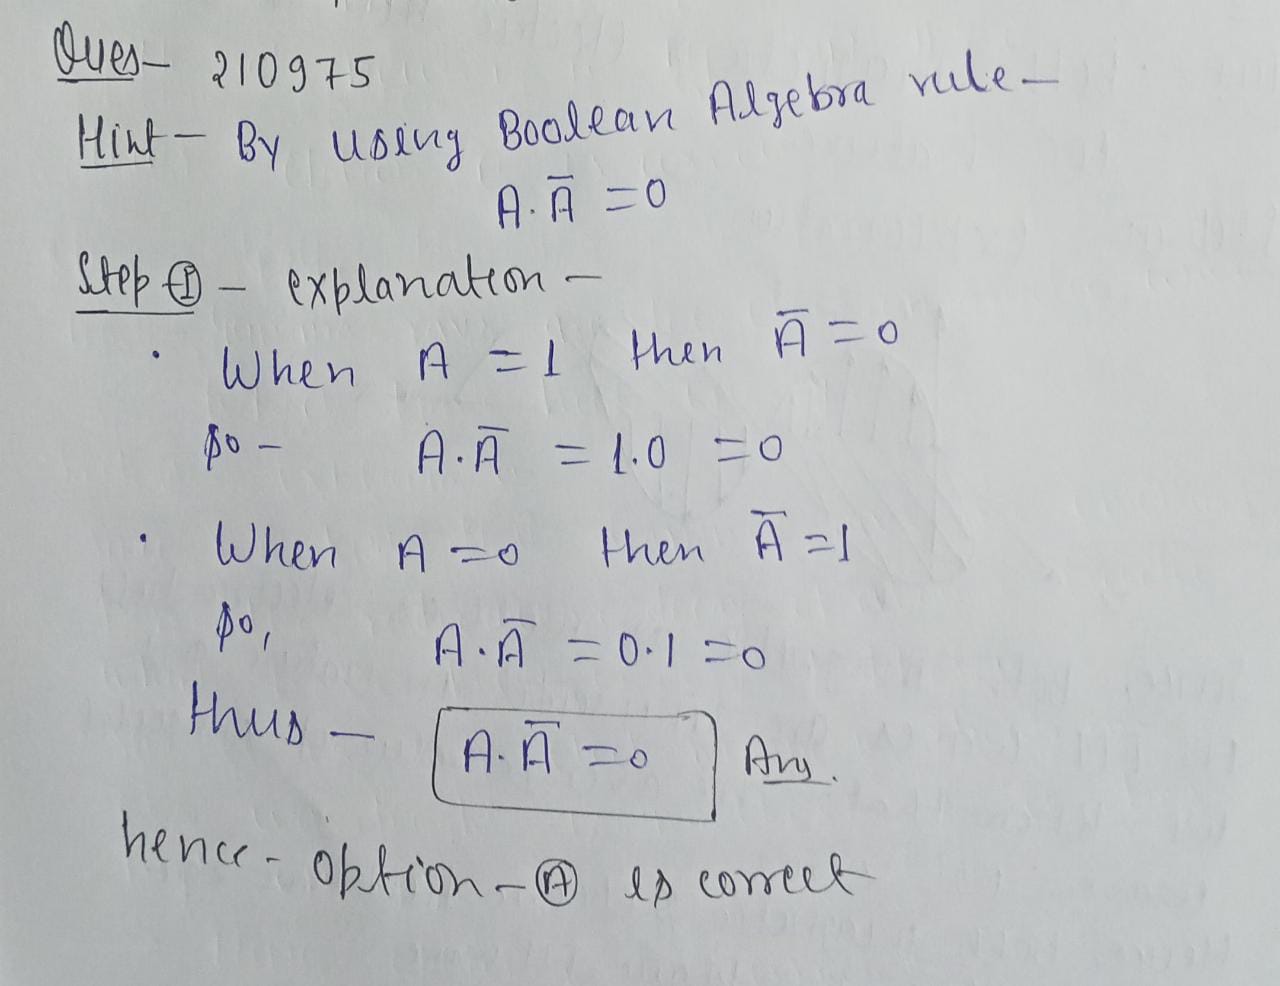 Ques- 210975
Hint - By using Boolean Algebra rule -
A.Ā = 0
Step ① - explanation -
· When A = 1 then Ā = 0
so - A.Ā = 1.0 = 0
· When A = 0 then Ā = 1
so, A.Ā = 0.1 = 0
thus - A.Ā = 0 Ans.
hence - option - Ⓐ is correct